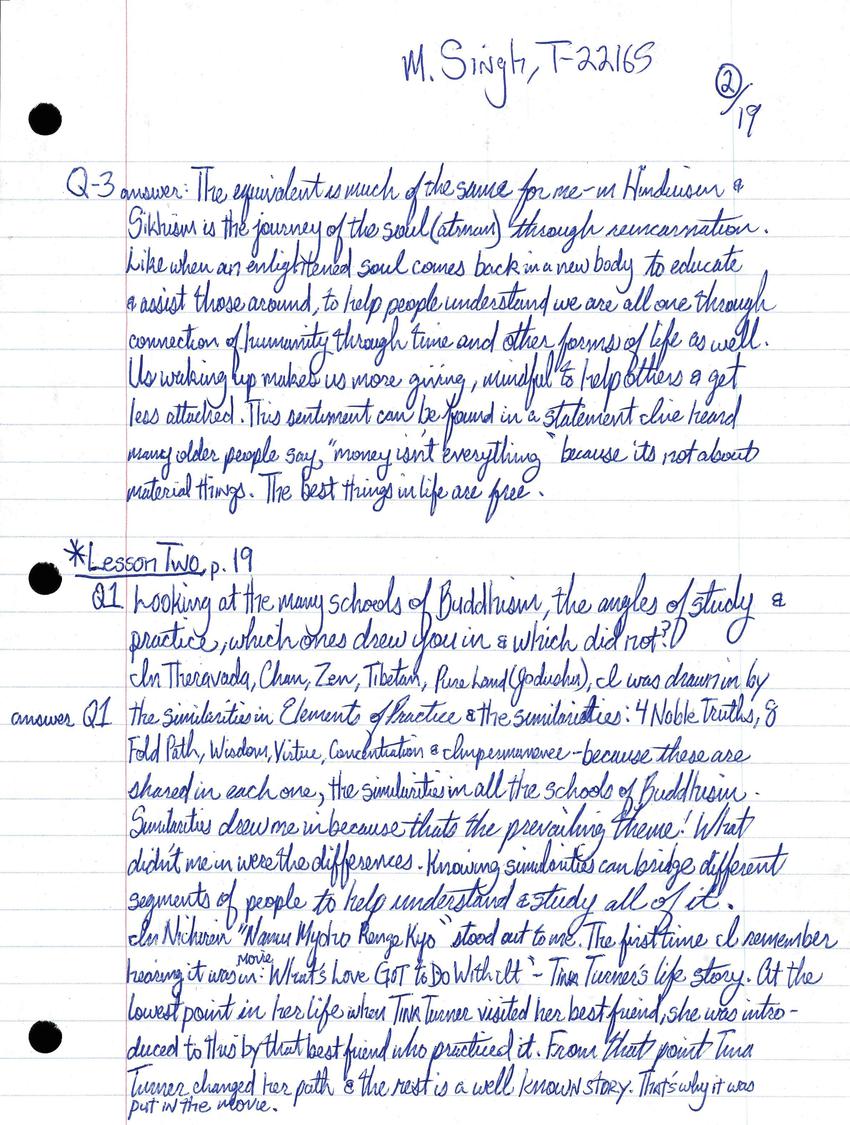 M. Singh, T-22165
2/19
Q-3 answer: The equivalent is much of the same for me-in Hinduism &
Sikhism is the journey of the soul (atman) through reincarnation.
Like when an enlightened soul comes back in a new body to educate
& assist those around, to help people understand we are all one through
connection of humanity through time and other forms of life as well.
Us waking up makes us more giving, mindful to help others & get
less attached. This sentiment can be found in a statement I've heard
many older people say, "money isn't everything" because its not about
material things. The best things in life are free.
*Lesson Two, p. 19
Q1 Looking at the many schools of Buddhism, the angles of study &
practice, which ones drew you in & which did not?
In Theravada, Chan, Zen, Tibetan, Pure Land (Jodushu), I was drawn in by
answer Q1 the similarities in Elements of Practice & the similarities: 4 Noble Truths, 8
Fold Path, Wisdom, Virtue, Concentration & Impermanence - because these are
shared in each one, the similarities in all the schools of Buddhism.
Similarities drew me in because thats the prevailing theme! What
didn't me in were the differences. Knowing similarities can bridge different
segments of people to help understand & study all of it.
In Nichiren "Namu Myoho Renge Kyo" stood out to me. The first time I remember
hearing it was in movie: "What's Love GOT To Do With It" - Tina Turner's life story. At the
lowest point in her life when Tina Turner visited her best friend, she was intro-
duced to this by that best friend who practiced it. From that point Tina
Turner changed her path & the rest is a well known story. That's why it was
put in the movie.